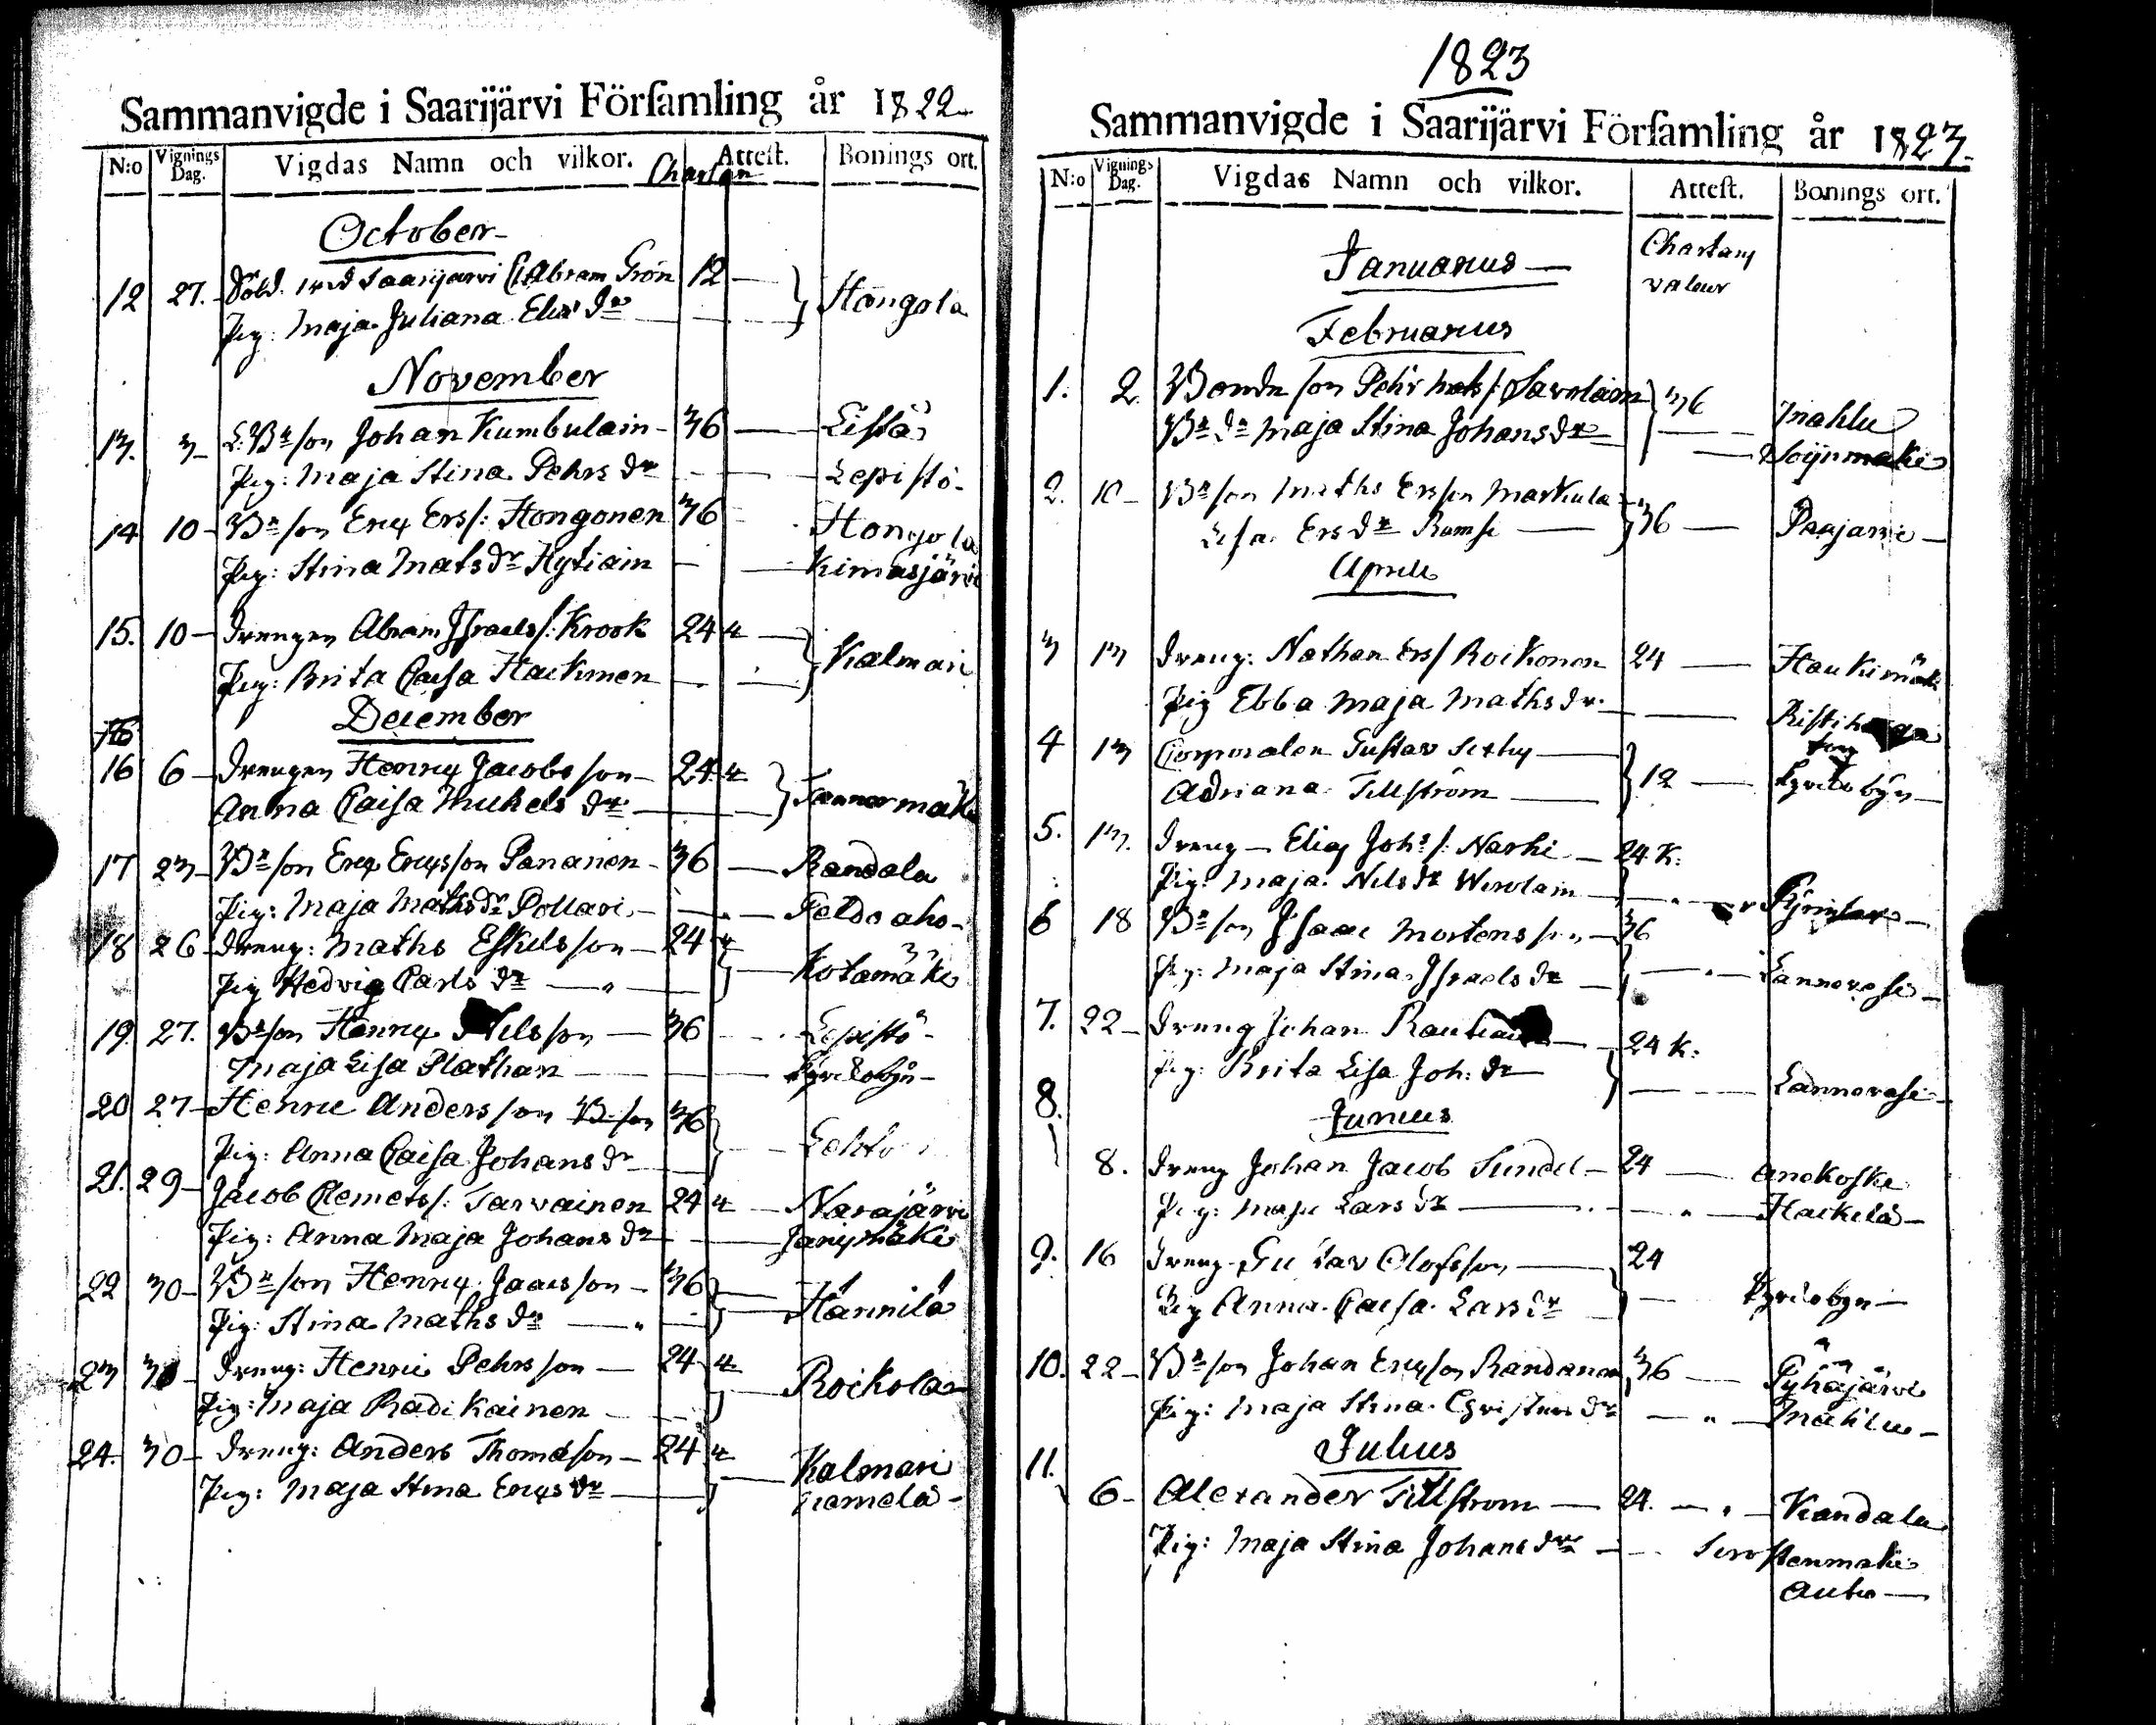 Sammanvigde i Saarijärvi Församling år 1822
N:o Vignings Dag. Vigdas Namn och vilkor. Chartan Attest. Bonings ort.
October
12 27. Sold. Saarijarvi Abram Grön 12 Hongola
Pig: Maja Juliana Elis dr
November
13. 3 Johan Kumbulain 36 Listä
Pig: Maja Stina Pehrs dr Lepistö
14 10 Bn son Eric Ers/: Hongonen 36 Hongola
Pig: Stina Mats dr Hytiäin Kimasjärvi
15. 10 Drengen Abram Israels/: Krook 24 4 Kalmari
Pig: Brita Caisa Hackmen
December
16
16 6 Drengen Henric Jacobsson 24 4
Anna Caisa Michels dr
17 23 Bn son Eric Ericsson Pananen 36 Randala
Pig: Maja Maths dr Pollari
18 26 Dreng: Maths Eskelsson 24 4 Kotamäki
Pig Hedvig Carls dr
19 27. Bn son Henric Nilsson 36 Lepistö
Maja Lisa Plathan Kyrckobyn
20 27 Henric Andersson Bn son 36
Pig: Anna Caisa Johans dr
21. 29 Jacob Clemets/: Tarvainen 24 4 Narajärvi
Pig: Anna Maja Johans dr
22 30 Bn son Henric Isacsson 36 Hännilä
Pig: Stina Maths dr
23 30 Dreng: Henric Pehrsson 24 4 Roikola
Pig: Maja Radikainen
24. 30 Dreng: Anders Thomasson 24 4 Kalmari
Pig: Maja Stina Erics dr
1823
Sammanvigde i Saarijärvi Församling år 1823.
N:o Vignings Dag. Vigdas Namn och vilkor. Attest. Bonings ort.
Januarius
Februarius
1. 2 Bonde son Pehr Mats/: Savolain 36 Mahlu
Bn dr Maja Stina Johans dr
2. 10 Bn son Maths Ersson Markula 36 Paajarvi
Lisa Ers dr Rumse
April
3 13 Dreng: Nathan Ers/ Roikonen 24 Haukimäki
Pig Ebba Maja Maths dr.
4 13 Corporalen Gustav 12 Kyrckobyn
Adriana Tillström
5. 13. Dreng Elias Johs/: Narhi 24 K:
Pig: Maja Nils dr
6 18 Bn son Isaac Mortensson 36
Pig: Maja Stina Israels dr Lannevesi
7. 22 Dreng Johan 24 K:
Pig: Brita Lisa Joh: dr Lannevesi
8.
Junius
8. Dreng Johan Jacob Sundel 24 Anekoski
Pig: Maja Lars dr
9. 16 Dreng Gustav Olofsson 24
Pig Anna Caisa Lars dr Kyrckobyn
10. 22 Bn son Johan Ericsson Randanen 36 Pyhäjärvi
Pig: Maja Stina Christers dr Mahlu
Julius
11.
6 Alexander Tillstrom 24. Kandala
Pig: Maja Stina Johans dr
Autio